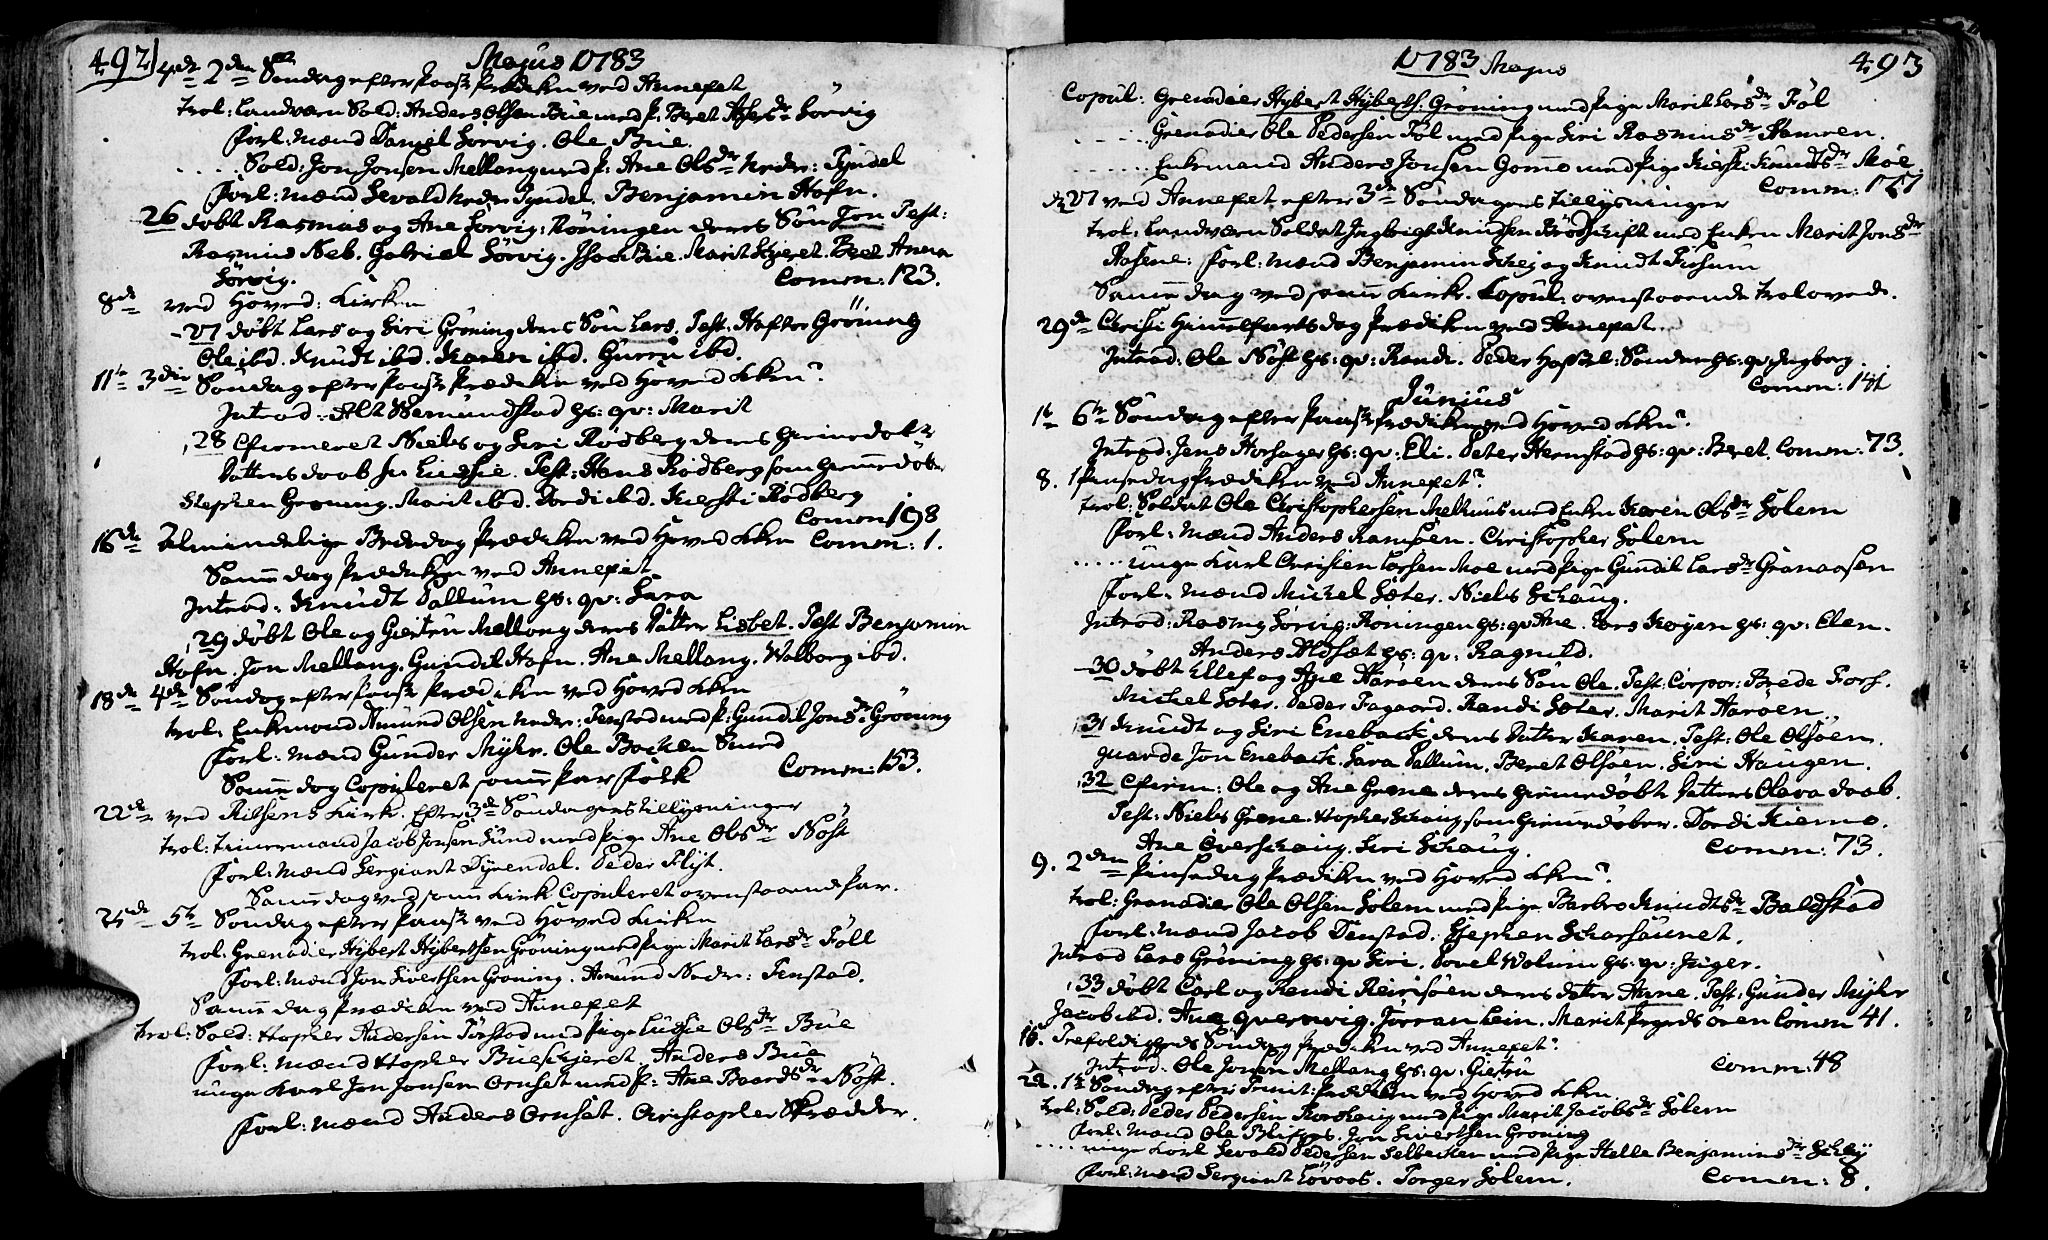 492
Majus 1783
4de 2den Søndag efter Paask Prædiken ved Annexet
trol: Landværn Sold: Anders Olsen Bue med P: Beret Dr Sørvig
forl: Mænd Daniel Sørvig. Ole Bue.
..... Sold: Jon Jonsen Mellang med P: Ane Olsdr Nedr: Tyndel
forl: Mænd Sevald Nedr Tyndel. Benjamin Hofn.
26 døbt Rasmus og Ane Sørvig: Røningen deres Søn Jon Test:
Rasmus Neb. Gabriel Sørvig. Bue. Marit Anna
Sørvig. Comm: 123.
8de ved Hoved: Kirken
27 døbt Lars og Siri Grøning deres Søn Lars. Test: Grøning
Ole ibd. Knudt ibd. Karen ibd. Gurru ibd.
11te 3die Søndag efter Paask Prædiken ved Hoved Kken
Introd: Alt Semundstad hs: qv: Marit
28 Cfirmeret Niels og Siri Rødberg deres hiemedøbt
Datters daab Lucsie. Test: Hans Rødberg som hiemedøber
Stephen Grøning. Marit ibd. Dordi ibd. Kiersti Rødberg
Comm 108
16de Almindelige Bededag Prædiken ved Hoved Kken Comm: 1.
Samme dag Prædiken ved Annexet
Introd: Knudt Pallum hs: qv: Sara
29 døbt Ole og Giertru Mellang deres Datter Lisbet. Test Benjamin
Hofn. Jon Mellang. Gundil Hofn. Ane Mellang. Walborg ibd.
18de 4de Søndag efter Paask Prædiken ved Hoved Kken
trol: Enkemand Amund Olsen Nedr: Tenstad med P: Gundil Jonsdr Grøning
forl: Mænd Gunder Myhr. Ole Bachen Smed
Samme dag Copuleret samme Par folk Comm: 153.
22de ved Rissens Kirk. Efter 3de Søndagers tillysninger
trol: Tømermand Jacob Jonsen Sund med Pige Ane Olsdr Nøst
forl: Mænd Sergiant Dyrendal. Peder Flyt.
Samme dag ved samme Kirk Copuleret ovenstaaende Par.
25de 5te Søndag efter Paask ved Hoved Kirken
trol. Grenadier Hybert Hybertsen Grøning med Pige Marit Larsdr Føll
forl: Mænd Jon Sivertsen Grøning. Amund Nedr: Tenstad.
Samme dag Prædiken ved Annexet
trol: Sold: Anders en Tørstad med Pige Lucsie Olsdr Bue
forl: Mænd Anders Bue
unge Karl Jon Jonsen Ornset med P: Ane Baardsdr Nøst.
forl: Mænd Anders Ornset. Christopher Skrædder.
1783 Majus
493
Copul: Grenadier Hybert Hyberts: Grøning med Pige Marit Larsdr Føl
..... Grenadier Ole Pedersen Føl med Pige Siri Rasmusdr Hamren.
..... Enkemand Anders Jonsen Gomo med Pige Kierst: Knudtsdr Moe
Comm: 177
d: 27 ved Annexet efter 3de Søndagers tillysninger
trol: Landværn Soldat Ingbrigt Knudsen med Enken Marit Jonsdr
Aasene: forl: Mænd Benjamin Schey og Knudt Fissum
Samme dag ved samme Kirk. Copul: ovenstaaende trolovede.
29de Christi Himmelfartsdag Prædiken ved Annexet.
Introd: Ole Nøst hs: qv: Randi. Peder Hassel: Sonden hs: qv Ingborg
Comm: 141
Junius
1te 6te Søndag efter Paask Prædiken ved Hoved Kken
Introd: Jens Horsager hs: qv: Eli. Peter Hernstad hs: qv: Beret. Comm: 73.
8. 1 Pinsedag Prædiken ved Annexet
trol: Soldat Ole Christophersen Melhuus med Enken Karen Olsdr Solem
forl: Mænd Anders Ramsøen. Christopher Solem
..... unge Karl Christen Larsen Moe med Pige Gundil Larsdr Granaasen
forl: Mænd Michel Sæter. Niels Schaug.
Introd: Rasmus Sørvig: Røningen hs: qv Ane. Lars Røyen hs: qv: Elen.
Anders Aldset hs: qv: Ragnild.
30 døbt Ellef og Ane Harøen deres Søn Ole. Test: Corpor: Brede Fors.
Michel Sæter. Peder Fagaard. Randi Sæter. Marit Aarøen
31 Knudt og Siri Eneback deres Datter Karen. Test: Ole Olsøen.
garde Jon Eneback. Sara Pallum. Beret Olsøen. Siri Haugen.
32 Cfirm: Ole og Ane Grene deres hiemedøbt Datters Oleva daab.
Test: Niels Grene. Schaug som hiemedøber. Dordi Kiemo.
Ane Overschaug. Siri Schaug. Comm: 73.
9. 2den Pinsedag Prædiken ved Hoved Kken
trol: Grenadier Ole Olsen Solem med Pige Barbro Knudtsdr Baldstad
forl: Mænd Jacob Tenstad. Stephen Scharsaunet.
Introd Lars Grøning hs: qv Siri. Povel Wolum hs: qv: Inger.
33 døbt Carl og Randi Reinsøen deres Datter Anne. Test: Gunder Myhr
Jacob ibd. Ane Quernvig. Jørran Lein. Marit øren Comm 41.
15. Trefoldigheds Søndag Prædiken ved Annexet
Introd: Ole Jonsen Mellang hs: qv: Giertru Comm: 48
22. 1te Søndag efter Trinit: Prædiken ved Hoved Kken
trol: Sold: Peder Pedersen Rorshaug med Pige Marit Jacobsdr Solem
forl: Mænd Ole Jon Sivertsen Grøning
..... unge Karl Sevald Pedersen Selbechen med Pige Helle Benjaminsdr Schey
forl: Mænd Sergiant Løvoos. Torger Solem. Comm: 8.